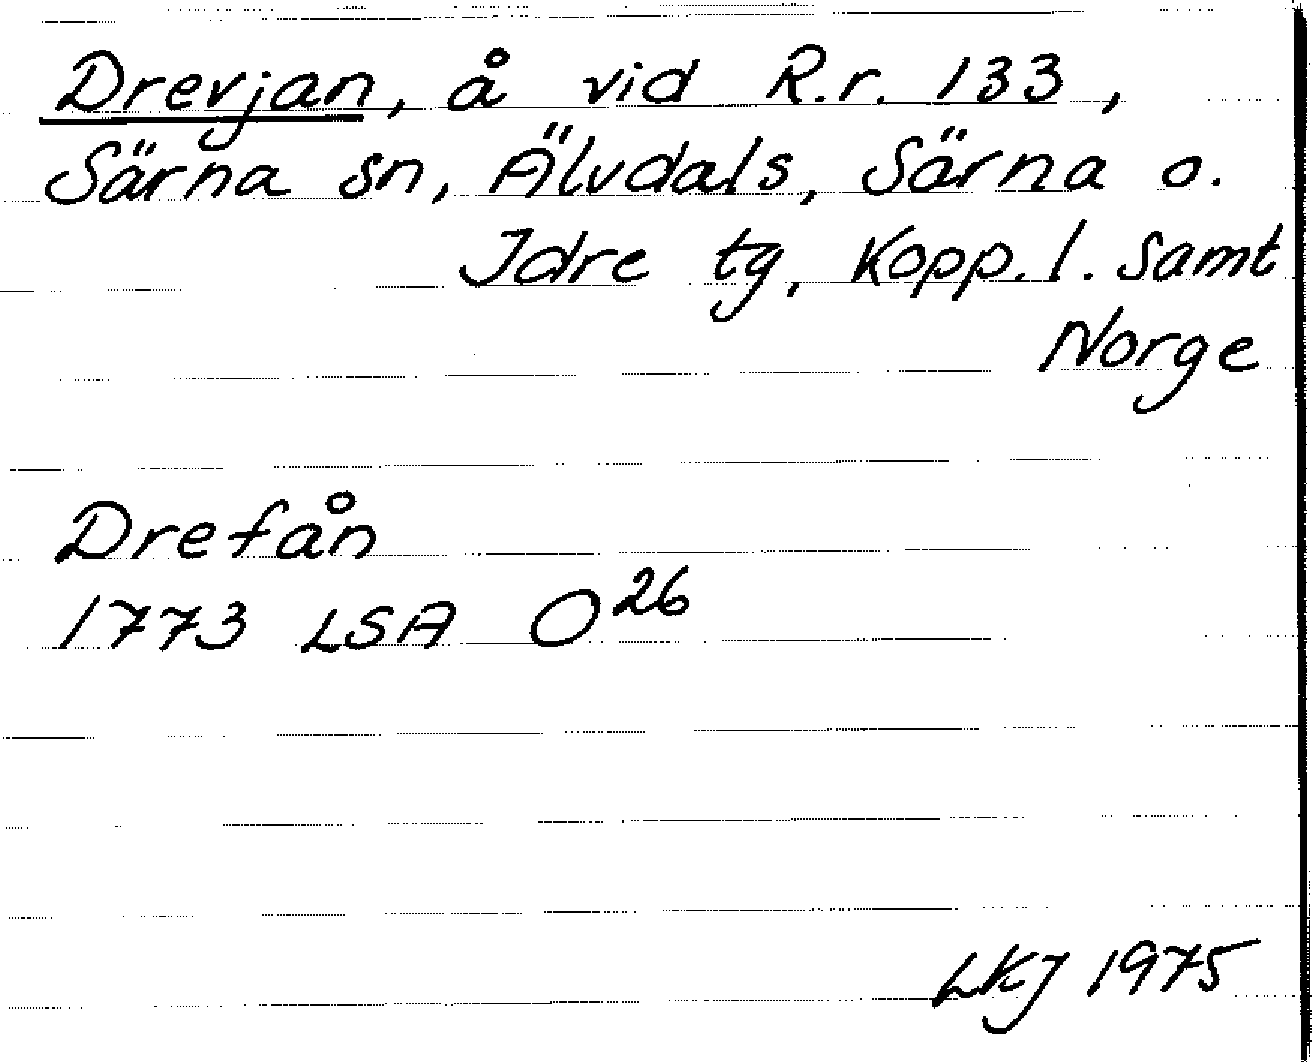 Drevjan, å vid R.r. 133,
Särna sn, Älvdals, Särna o.
Idre tg, Kopp. l. samt
Norge
Drefån
1773 LSA O26
LKJ 1975